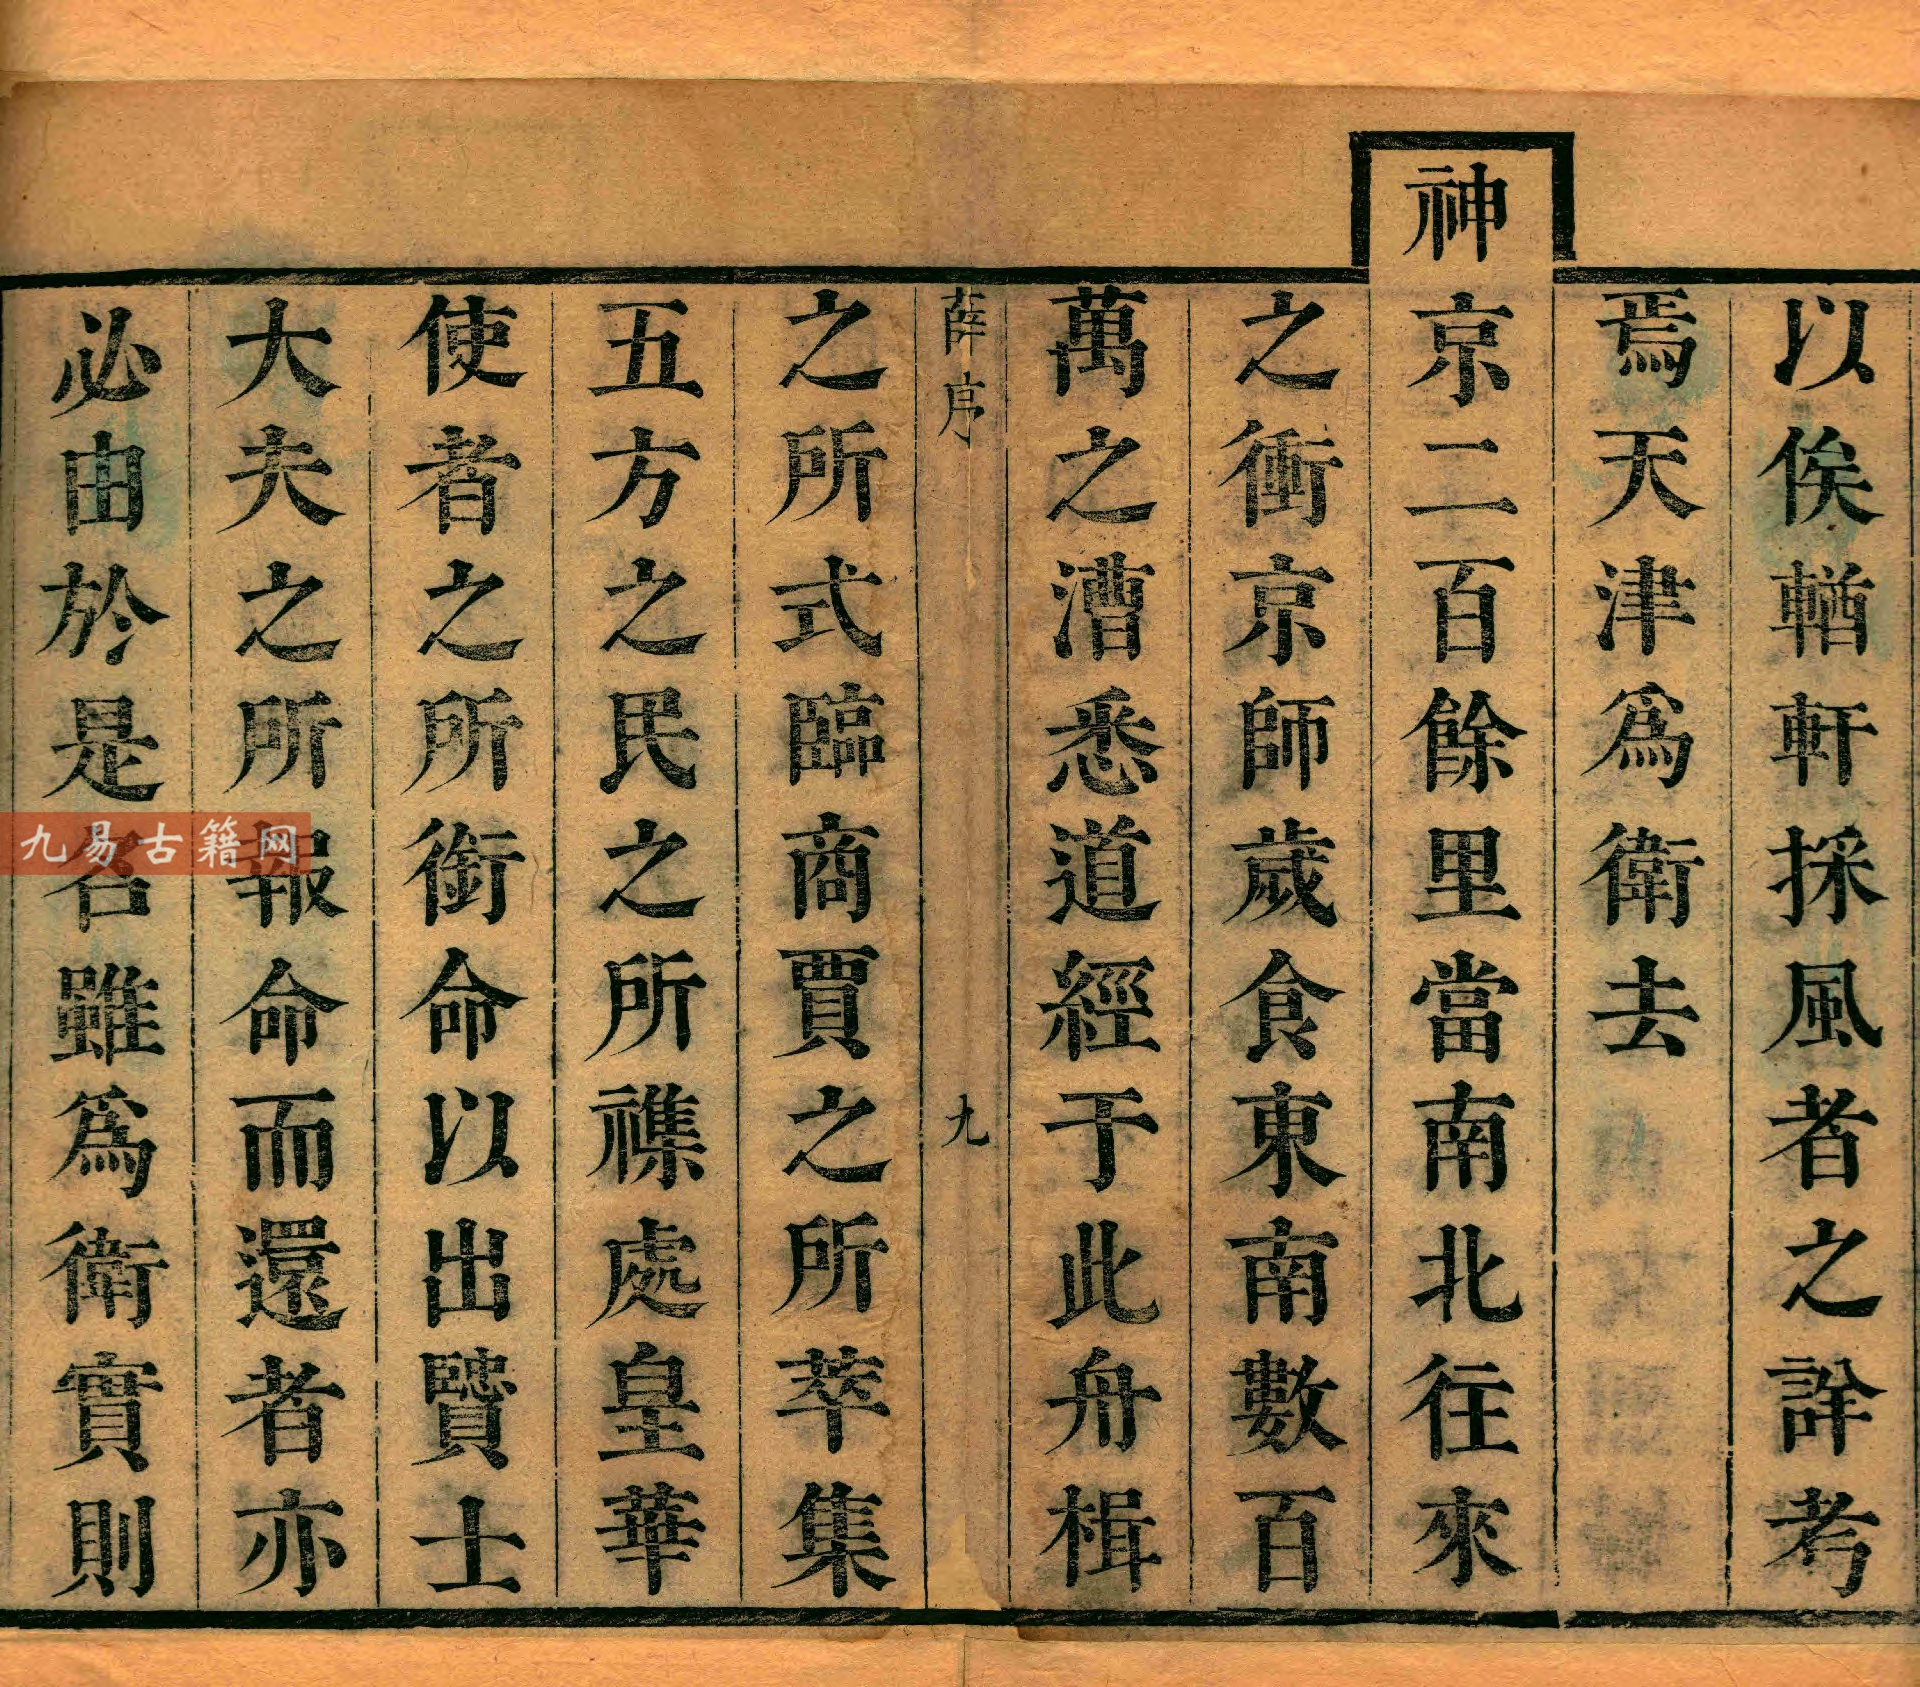 以俟輶軒採風者之詳考
焉天津為衛去
神京二百餘里當南北往來
之衝京師歲食東南數百
萬之漕悉道經于此舟楫
薛序
九
之所式臨商賈之所萃集
五方之民之所襍處皇華
使者之所銜命以出賢士
大夫之所報命而還者亦
必由於是名雖為衛實則
九易古籍网